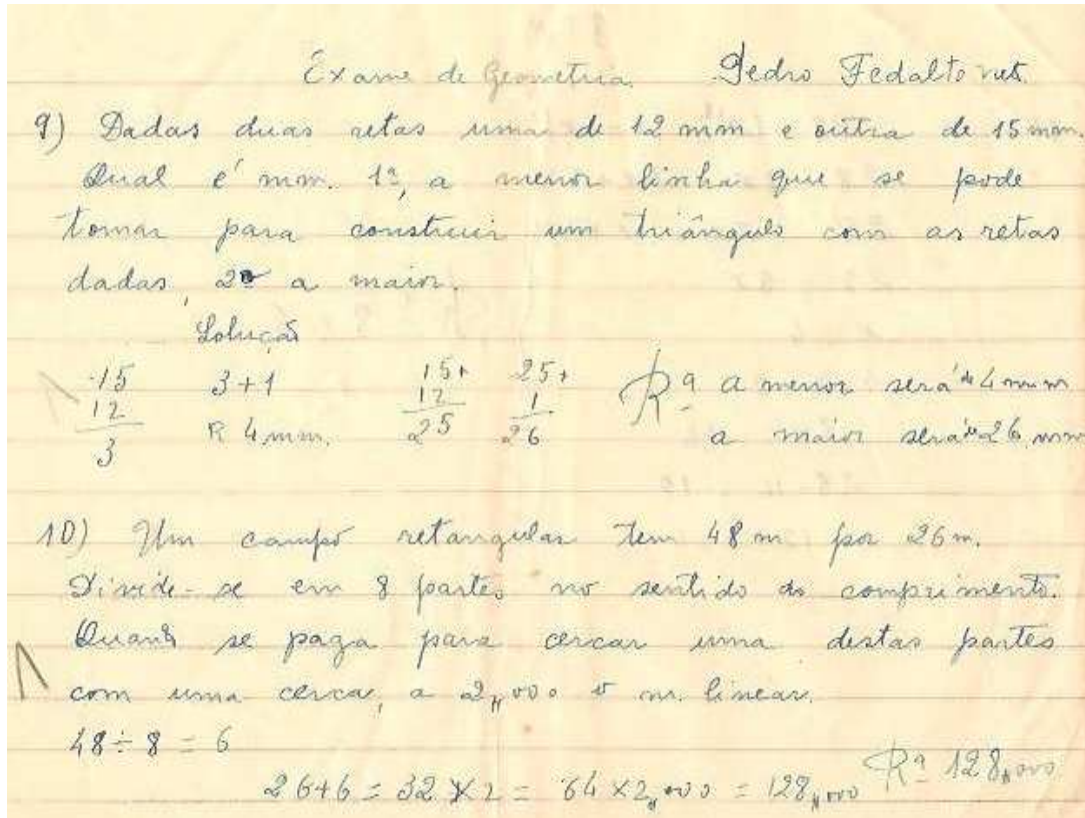 Exame de Geometria. Pedro Fedalto
9) Dadas duas retas uma de 12 mm e outra de 15 mm.
Qual é mm. 1º, a menor linha que se pode
tomar para construir um triângulo com as retas
dadas, 2º a maior.
Solução
15 3+1 15+ 25+ Rª a menor será de 4 mm
12 R 4 mm. 12 1 a maior será de 26 mm
3 25 26
10) Um campo retangular tem 48 m por 26 m.
Divide-se em 8 partes no sentido do comprimento.
Quanto se paga para cercar uma destas partes
com uma cerca, a 2,,000 o m. linear.
48÷8 = 6
26+6 = 32 X 2 = 64 X 2,,000 = 128,,000 Rª 128,,000